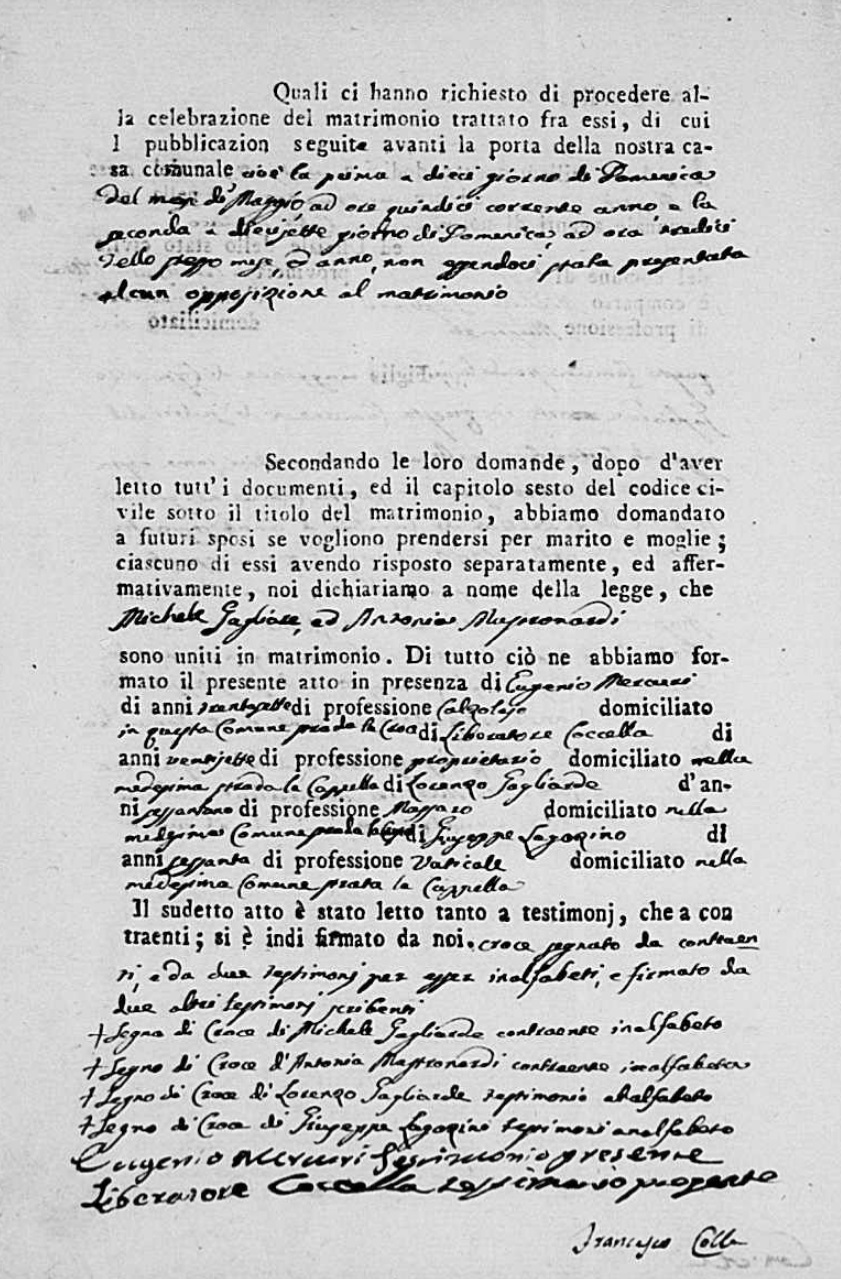 Quali ci hanno richiesto di procedere al-
la celebrazione del matrimonio trattato fra essi, di cui
l pubblicazion seguite avanti la porta della nostra ca-
sa comunale cioè la prima a dieci giorno di Domenica
del mese di Maggio, ad ore quindici corrente anno, e la
seconda a diecisette giorno di Domenica, ad ora
dello stesso mese, ed anno, non essendoci stata presentata
alcun opposizione al matrimonio
Secondando le loro domande, dopo d'aver
letto tutt'i documenti, ed il capitolo sesto del codice ci-
vile sotto il titolo del matrimonio, abbiamo domandato
a futuri sposi se vogliono prendersi per marito e moglie;
ciascuno di essi avendo risposto separatamente, ed affer-
mativamente, noi dichiariamo a nome della legge, che
Michele Gagliarde, ed Antonia Mastronardi
sono uniti in matrimonio. Di tutto ciò ne abbiamo for-
mato il presente atto in presenza di Eugenio Mercuri
di anni trentasette di professione Calzolajo domiciliato
in questa Comune strada la di Liberatore Coccella di
anni ventisette di professione proprietario domiciliato nella
medesima strada la Cappella di Lorenzo Gagliarde d'an-
ni sessantuno di professione Massaro domiciliato nella
medesima Comune strada di Giuseppe Lagozino di
anni sessanta di professione Vaticale domiciliato nella
medesima Comune strata la Cappella
Il sudetto atto è stato letto tanto a testimonj, che a con
traenti; si è indi firmato da noi. croce segnato da contraen
ti, e da due testimonj per esser inalfabeti, e firmato da
due altri testimonj scribenti
+ Segno di Croce di Michele Gagliarde contraente inalfabeto
+ Segno di Croce d'Antonia Mastronardi contraente inalfabeta
+ Segno di Croce di Lorenzo Gagliarde testimonio analfabeto
+ Segno di Croce di Giuseppe Lagozino testimonio analfabeto
Eugenio Mercuri testimonio presente
Liberatore Coccella testimonio presente
Francesco Colle